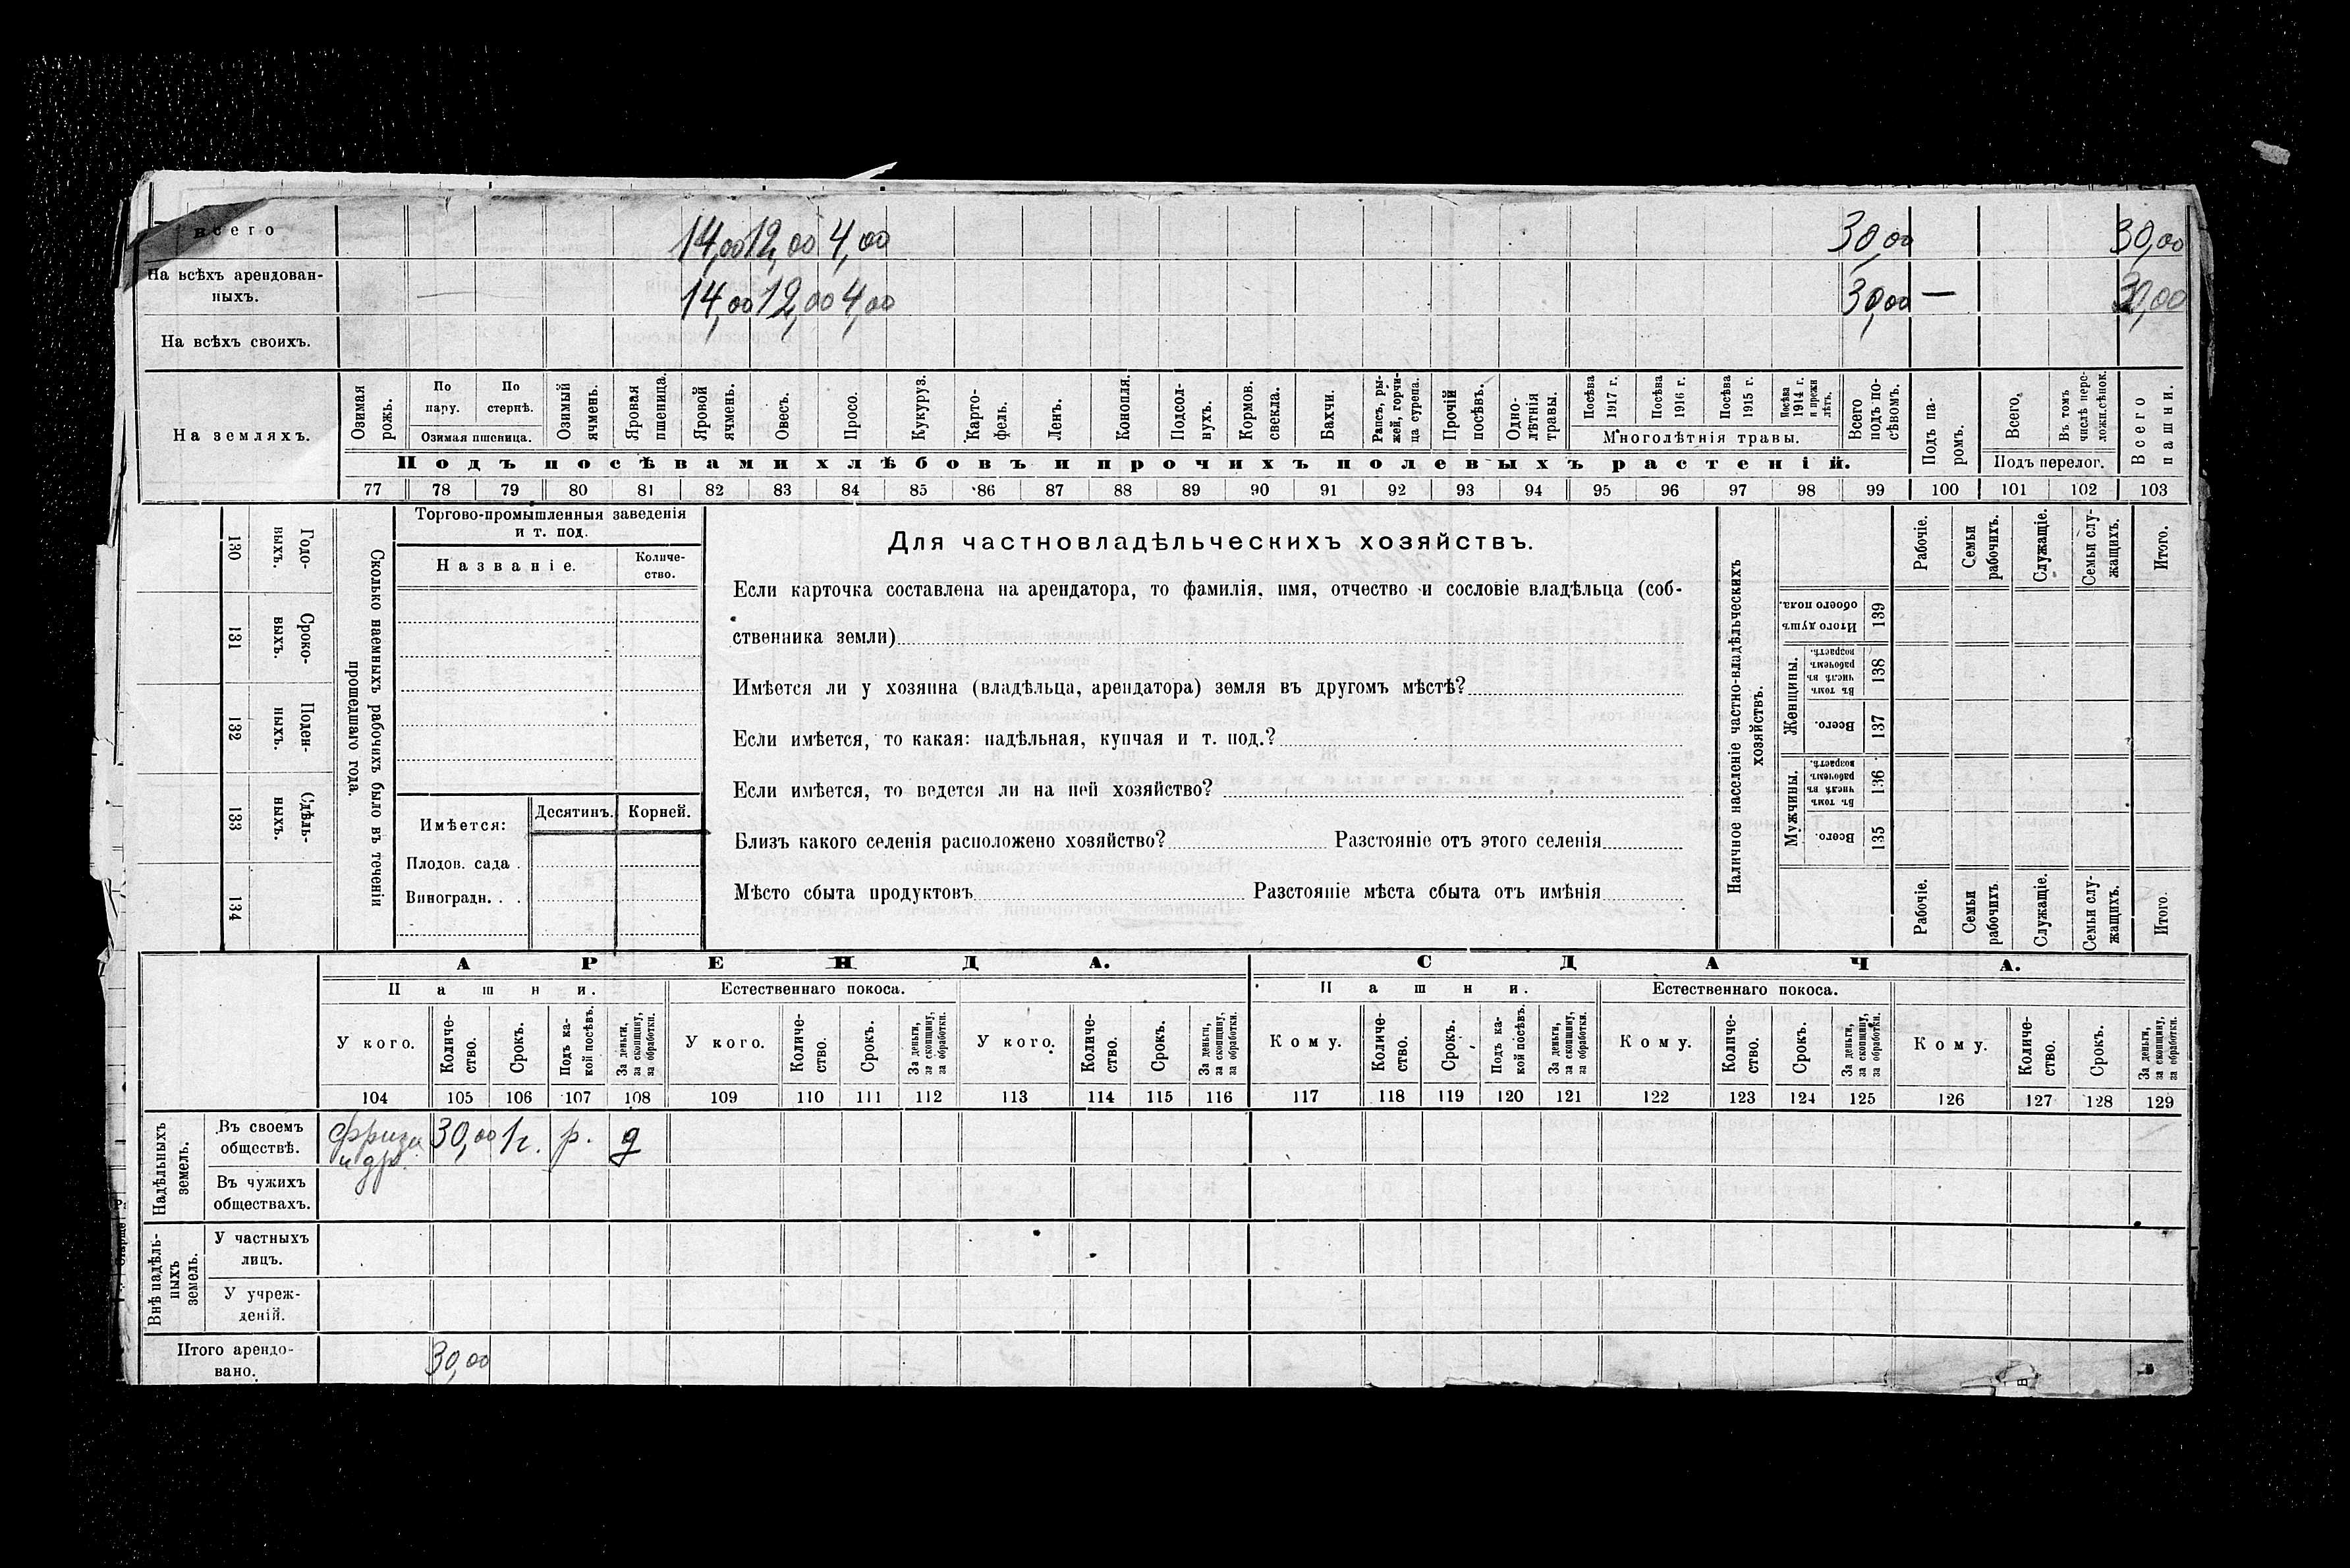 Всего 14,00 12,00 4,00 30,00 30,00
На всѣхъ арендован-
ныхъ. 14,00 12,00 4,00 30,00 — 30,00
На всѣхъ своихъ.
На земляхъ.
Озимая рожь.
По пару.
По стернѣ.
Озимая пшеница.
Озимый ячмень.
Яровая пшеница.
Яровой ячмень.
Овесъ.
Просо.
Кукуруз.
Карто-
фель.
Ленъ.
Конопля.
Подсол-
нухъ.
Кормов. свекла.
Бахчи.
Рапсъ, ры-
жей, горчи-
ца сурепа.
Прочій посѣвъ.
Одно-
лѣтнія травы.
Посѣва 1917 г.
Посѣва 1916 г.
Посѣва 1915 г.
Посѣва 1914 г. и прежн лѣтъ.
Многолѣтнія травы.
Всего подъ по-
сѣвомъ.
Подъ па-
ромъ.
Всего.
Въ томъ числѣ пере-
ложн.сѣнок.
Подъ перелог.
Всего пашни.
Подъ посѣвами хлѣбовъ и прочихъ полевыхъ растеній.
77 78 79 80 81 82 83 84 85 86 87 88 89 90 91 92 93 94 95 96 97 98 99 100 101 102 103
130 Годо-
выхъ.
131 Сроко-
выхъ.
132 Поден-
ныхъ.
133 Сдѣль-
ныхъ.
134
Сколько наемныхъ рабочихъ было въ теченіи
прошедшаго года.
Торгово-промышленныя заведенія
и т. под.
Названіе.
Количе-
ство.
Имѣется: Десятинъ. Корней.
Плодов. сада .
Виноградн. . .
Для частновладѣльческихъ хозяйствъ.
Если карточка составлена на арендатора, то фамилія, имя, отчество и сословіе владѣльца (соб-
ственника земли)
Имѣется ли у хозяина (владѣльца, арендатора) земля въ другомъ мѣстѣ?
Если имѣется, то какая: надѣльная, купчая и т. под.?
Если имѣется, то ведется ли на ней хозяйство?
Близъ какого селенія расположено хозяйство? Разстояніе отъ этого селенія
Мѣсто сбыта продуктовъ Разстояніе мѣста сбыта отъ имѣнія
Наличное населеніе частно-владѣльческихъ
хозяйствъ.
Рабочіе.
Семьи рабочихъ.
Служащіе.
Семьи слу-
жащихъ.
Итого.
Итого душъ обоего пола. 139
Женщины.
Въ томъ числѣ въ рабочемъ возрастѣ. 138
Всего. 137
Мужчины.
Въ томъ числѣ въ рабочемъ возрастѣ. 136
Всего. 135
Рабочіе.
Семьи рабочихъ.
Служащіе.
Семьи слу-
жащихъ.
Итого.
АРЕНДА. СДАЧА.
Пашни. Естественнаго покоса. Пашни. Естественнаго покоса.
У кого.
Количе-
ство.
Срокъ.
Подъ ка-
кой посѣвъ.
За деньги,
за скопщину,
за обработки.
У кого.
Количе-
ство.
Срокъ.
За деньги,
за скопщину,
за обработки.
У кого.
Количе-
ство.
Срокъ.
За деньги,
за скопщину,
за обработки.
Кому.
Количе-
ство.
Срокъ.
Подъ ка-
кой посѣвъ.
За деньги,
за скопщину,
за обработки.
Кому.
Количе-
ство.
Срокъ.
За деньги,
за скопщину,
за обработки.
Кому.
Количе-
ство.
Срокъ.
За деньги,
за скопщину,
за обработки.
104 105 106 107 108 109 110 111 112 113 114 115 116 117 118 119 120 121 122 123 124 125 126 127 128 129
Надѣльныхъ
земель.
Въ своемъ
обществѣ. 30,00 1г. р. д
и др.
Въ чужихъ
обществахъ.
Внѣ надѣль-
ныхъ
земель.
У частныхъ
лицъ.
У учреж-
деній.
Итого арендо-
вано. 30,00